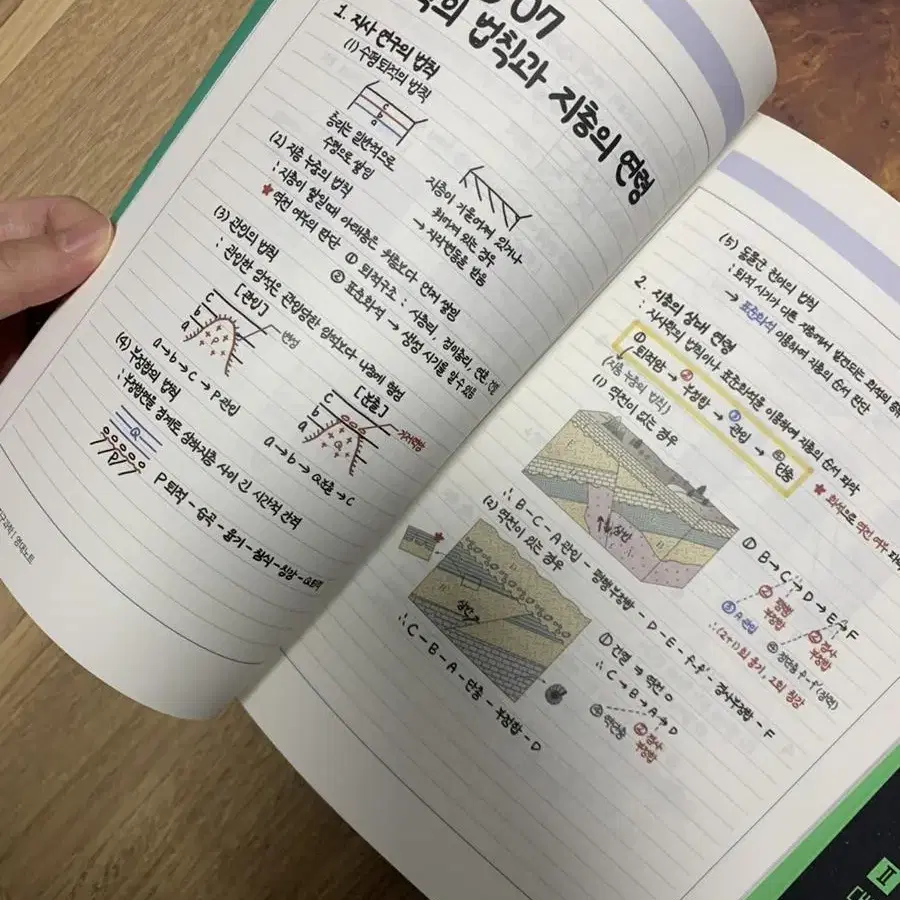 07
의 법칙과 지층의 연령
1. 지사 연구의 법칙
(1) 수평퇴적의 법칙
층리는 일반적으로
수평으로 쌓임
지층이 기울어져 있거나
휘어져 있는 경우
→ 지각변동을 받음
(2) 지층 누중의 법칙
: 지층이 쌓일 때 아래층은 위층보다 먼저 쌓임
★ 역전 여부의 판단
① 퇴적구조 : 사층리, 점이층리, 건열,
② 표준화석 → 생성 시기를 알 수 있음
(3) 관입의 법칙
: 관입한 암석은 관입당한 암석보다 나중에 형성
[관입]
c
b
a
P
변성
a → b → c → P 관입
[분출]
c
b
a
Q
기저역암
a → b → Q 분출 → c
(4) 부정합의 법칙
: 부정합면을 경계로 상하지층 사이 긴 시간적 간격
Q
P
P 퇴적 - 습곡 - 융기 - 침식 - 침강 - Q 퇴적
(5) 동물군 천이의 법칙
: 퇴적 시기가 다른 지층에서 발견되는 화석의
→ 표준화석 이용하여 지층의 순서 판단
2. 지층의 상대 연령
: 지사학의 법칙이나 표준화석을 이용하여 지층의 순서 파악
① 퇴적암 → ② 부정합 → ③ 관입 → ④ 단층
(지층 누중의 법칙)
★ 화석으로 역전 여부
(1) 역전이 없는 경우
① B → C → D → E → F
② 평행
부정합
③ A 관입
④ 경사
부정합
∴ (2+1)회 융기, 2회 침강
∴ B - C - A 관입 - 평행부정합 - D - E - f-f' - 경사부정합 - F
(2) 역전이 있는 경우
① 건열 ⇒ 역전 O
∴ C → B → A → D
④ 역단층
경사
부정합
∴ C - B - A - 단층 - 부정합 - D
Ⅱ